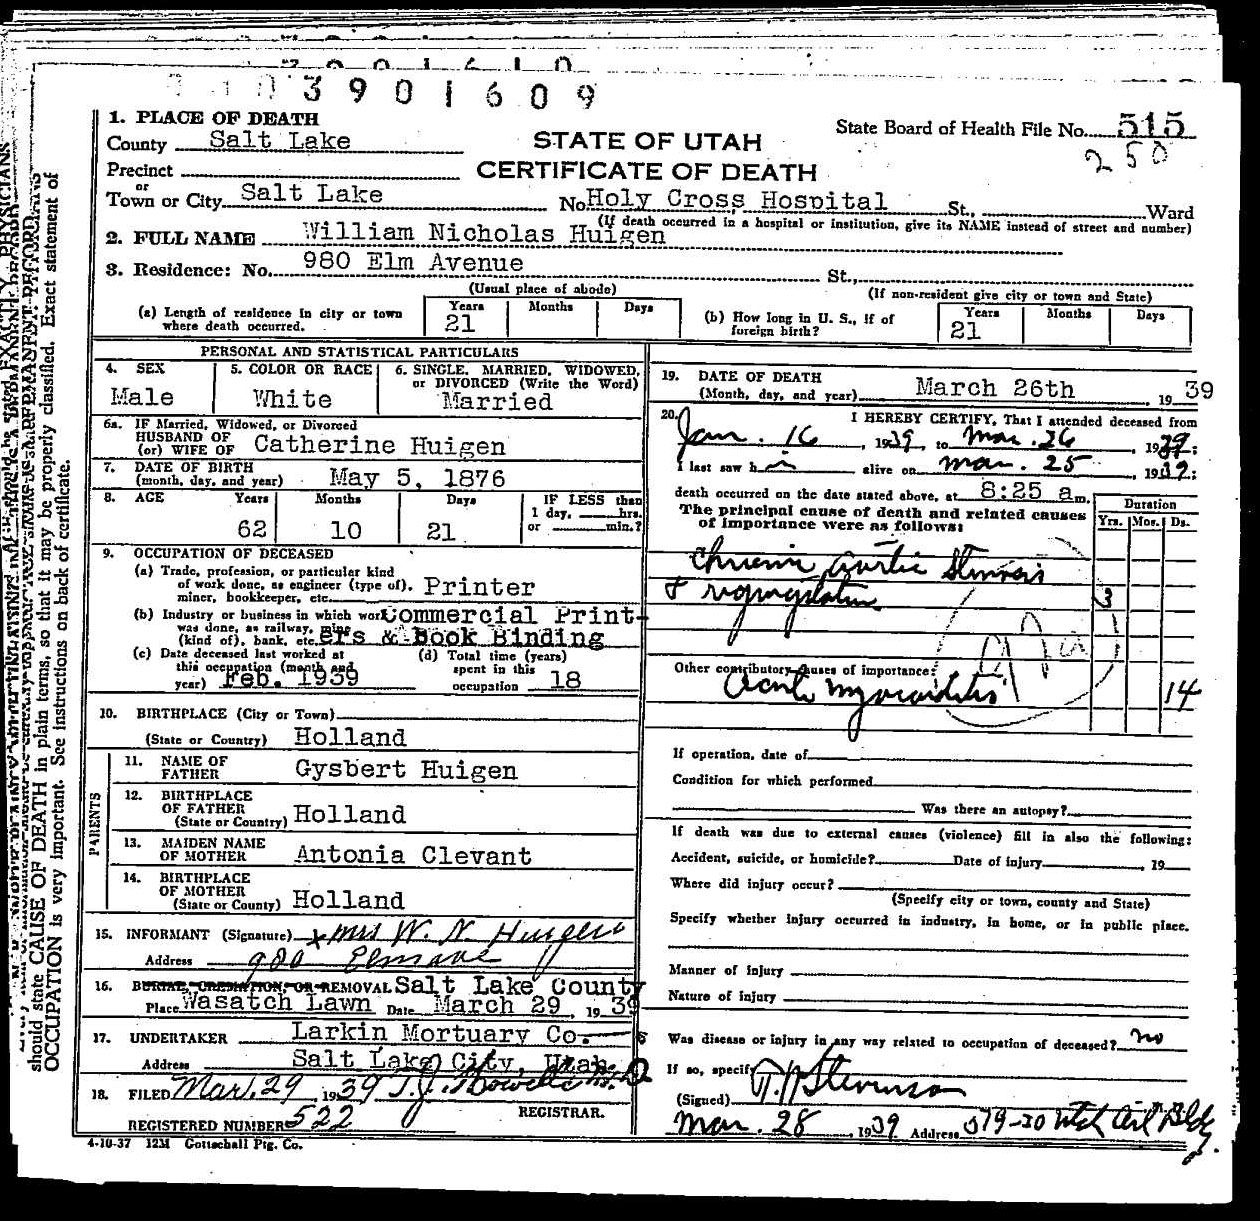 3901609
1. PLACE OF DEATH
County Salt Lake
STATE OF UTAH
State Board of Health File No. 515
Precinct
CERTIFICATE OF DEATH
250
or
Town or City Salt Lake No. Holy Cross Hospital St., Ward
(If death occurred in a hospital or institution, give its NAME instead of street and number)
2. FULL NAME William Nicholas Huigen
3. Residence: No. 980 Elm Avenue St.,
(Usual place of abode) (If non-resident give city or town and State)
(a) Length of residence in city or town where death occurred. Years 21 Months Days
(b) How long in U. S., if of foreign birth? Years 21 Months Days
PERSONAL AND STATISTICAL PARTICULARS
4. SEX Male
5. COLOR OR RACE White
6. SINGLE, MARRIED, WIDOWED, or DIVORCED (Write the Word) Married
6a. IF Married, Widowed, or Divorced
HUSBAND OF
(or) WIFE OF Catherine Huigen
7. DATE OF BIRTH
(month, day, and year) May 5, 1876
8. AGE Years 62 Months 10 Days 21 IF LESS than 1 day, hrs. or min.?
9. OCCUPATION OF DECEASED
(a) Trade, profession, or particular kind
of work done, as engineer (type of),
miner, bookkeeper, etc. Printer
(b) Industry or business in which work Commercial Print-
was done, as railway, mine
(kind of), bank, etc. ers & Book Binding
(c) Date deceased last worked at
this occupation (month and
year) Feb. 1939
(d) Total time (years)
spent in this
occupation 18
10. BIRTHPLACE (City or Town)
(State or Country) Holland
PARENTS
11. NAME OF
FATHER Gysbert Huigen
12. BIRTHPLACE
OF FATHER
(State or Country) Holland
13. MAIDEN NAME
OF MOTHER Antonia Clevant
14. BIRTHPLACE
OF MOTHER
(State or Country) Holland
15. INFORMANT (Signature) x Mrs W. N. Huigen
Address 980 Elm ave
16. BURIAL, CREMATION, OR REMOVAL Salt Lake County
Place Wasatch Lawn Date March 29, 1939
17. UNDERTAKER Larkin Mortuary Co.
Address Salt Lake City, Utah
18. FILED Mar. 29 1939 T.J. Howells M.D.
REGISTRAR.
REGISTERED NUMBER 522
4-10-37 12M Gottschall Ptg. Co.
19. DATE OF DEATH
(Month, day, and year) March 26th, 1939
20. I HEREBY CERTIFY, That I attended deceased from
Jan. 16, 1939, to Mar. 26 1939;
I last saw him alive on Mar. 25, 1939;
death occurred on the date stated above, at 8:25 a.m.
The principal cause of death and related causes
of importance were as follows:
Duration
Yrs. Mos. Ds.
Chronic Aortic Stenosis
& regurgitation 3
Other contributory causes of importance:
Acute myocarditis 14
If operation, date of
Condition for which performed
Was there an autopsy?
If death was due to external causes (violence) fill in also the following:
Accident, suicide, or homicide? Date of injury , 19
Where did injury occur?
(Specify city or town, county and State)
Specify whether injury occurred in industry, in home, or in public place.
Manner of injury
Nature of injury
Was disease or injury in any way related to occupation of deceased? no
If so, specify
(Signed) Stevenson
Mar. 28, 1939 Address
should state CAUSE OF DEATH in plain terms, so that it may be properly classified. Exact statement of
OCCUPATION is very important. See instructions on back of certificate.